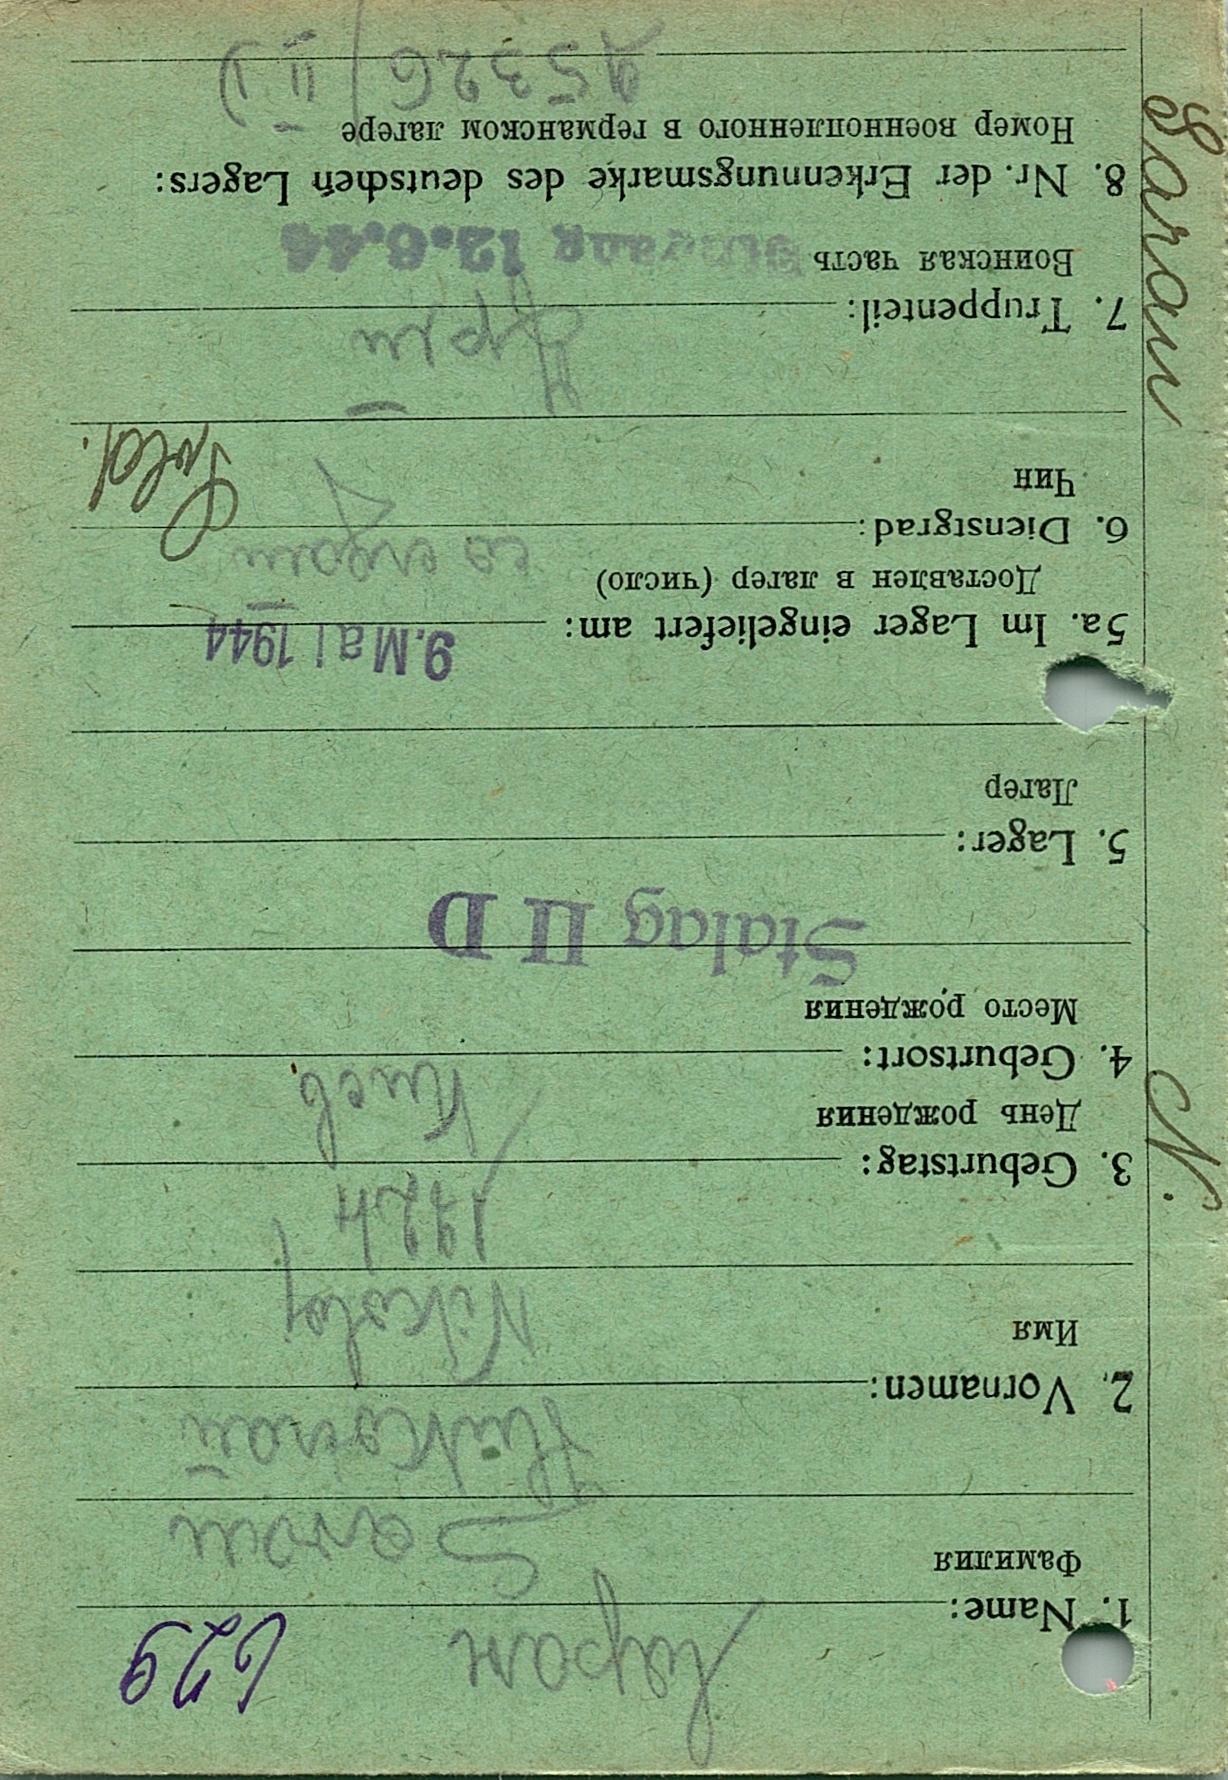 629
1. Name:
Фамилия Saran
Николай
2. Vornamen:
Имя Nikolaj
1924
3. Geburtstag:
День рождения
Киев
4. Geburtsort:
Место рождения
Stalag II D
5. Lager:
Лагер
9. Mai 1944
5a. Im Lager eingeliefert am:
Доставлен в лагер (число)
солдат
6. Dienstgrad:
Чин
Sold.
7. Truppenteil:
Воинская часть
Eingang 12.6.44
8. Nr. der Erkennungsmarke des deutschen Lagers:
Номер военнопленного в германском лагере
95326 / II D
Saran N.